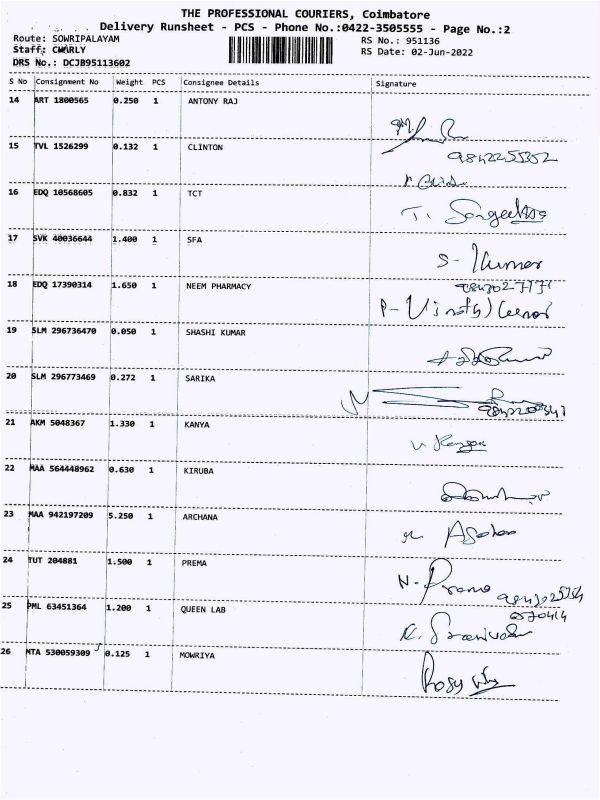 THE PROFESSIONAL COURIERS, Coimbatore
Delivery Runsheet - PCS - Phone No.:0422-3505555 - Page No.:2
Route: SOWRIPALAYAM RS No.: 951136
Staff: CHARLY RS Date: 02-Jun-2022
DRS No.: DCJB95113602
S No Consignment No Weight PCS Consignee Details Signature
14 ART 1800565 0.250 1 ANTONY RAJ
9842255352
15 TVL 1526299 0.132 1 CLINTON
16 EDQ 10568605 0.832 1 TCT
T.
17 SVK 40036644 1.400 1 SFA
S- Kumar
18 EDQ 17390314 1.650 1 NEEM PHARMACY
P-
19 SLM 296736470 0.050 1 SHASHI KUMAR
20 SLM 296773469 0.272 1 SARIKA
21 AKM 5048367 1.330 1 KANYA
22 MAA 564448962 0.630 1 KIRUBA
23 MAA 942197209 5.250 1 ARCHANA
24 TUT 204881 1.500 1 PREMA
N-Prema
25 PML 63451364 1.200 1 QUEEN LAB
26 MTA 530059309 0.125 1 MOWRIYA
Rosy